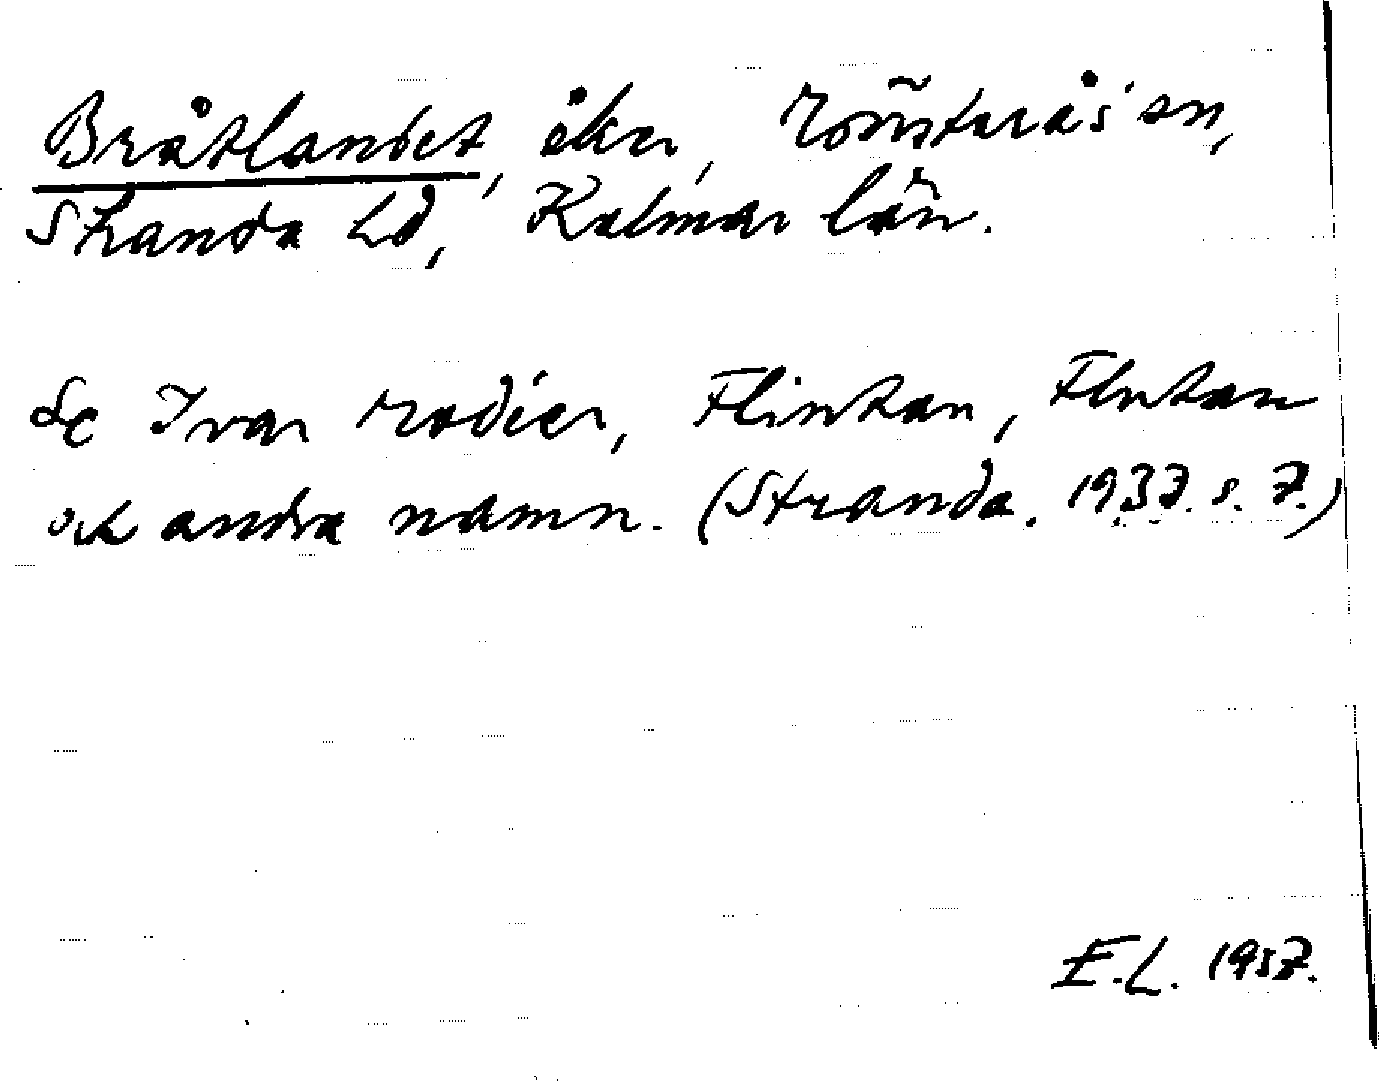 Bråtlandet, åker, Rönsterås sn,
Stranda hd, Kalmar län.
Se Ivar Modéer, Flinkan, Flntan
och andra namn. (Stranda. 1937. s. 7.)
E.L. 1957.